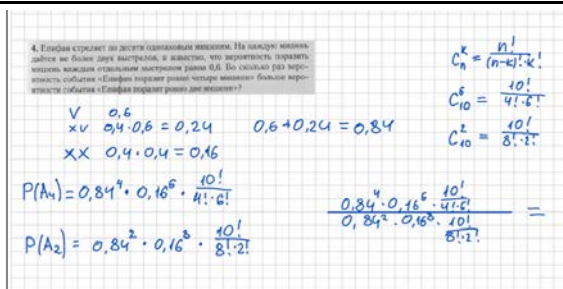 4. Епифан стреляет по десяти одинаковым мишеням. На каждую мишень
даётся не более двух выстрелов, и известно, что вероятность поразить
мишень каждым отдельным выстрелом равна 0,6. Во сколько раз веро-
ятность события «Епифан поразит ровно четыре мишени» больше веро-
ятности события «Епифан поразит ровно две мишени»?
C_n^k = n! / (n-k)!·k!
C_10^6 = 10! / 4!·6!
C_10^2 = 10! / 8!·2!
V 0,6
xv 0,4·0,6 = 0,24 0,6+0,24 = 0,84
xx 0,4·0,4 = 0,16
P(A₄) = 0,84⁴ · 0,16⁶ · 10! / 4!·6!
P(A₂) = 0,84² · 0,16⁸ · 10! / 8!·2!
0,84⁴·0,16⁶·10! / 4!·6!
0,84²·0,16⁸·10! / 8!·2! =